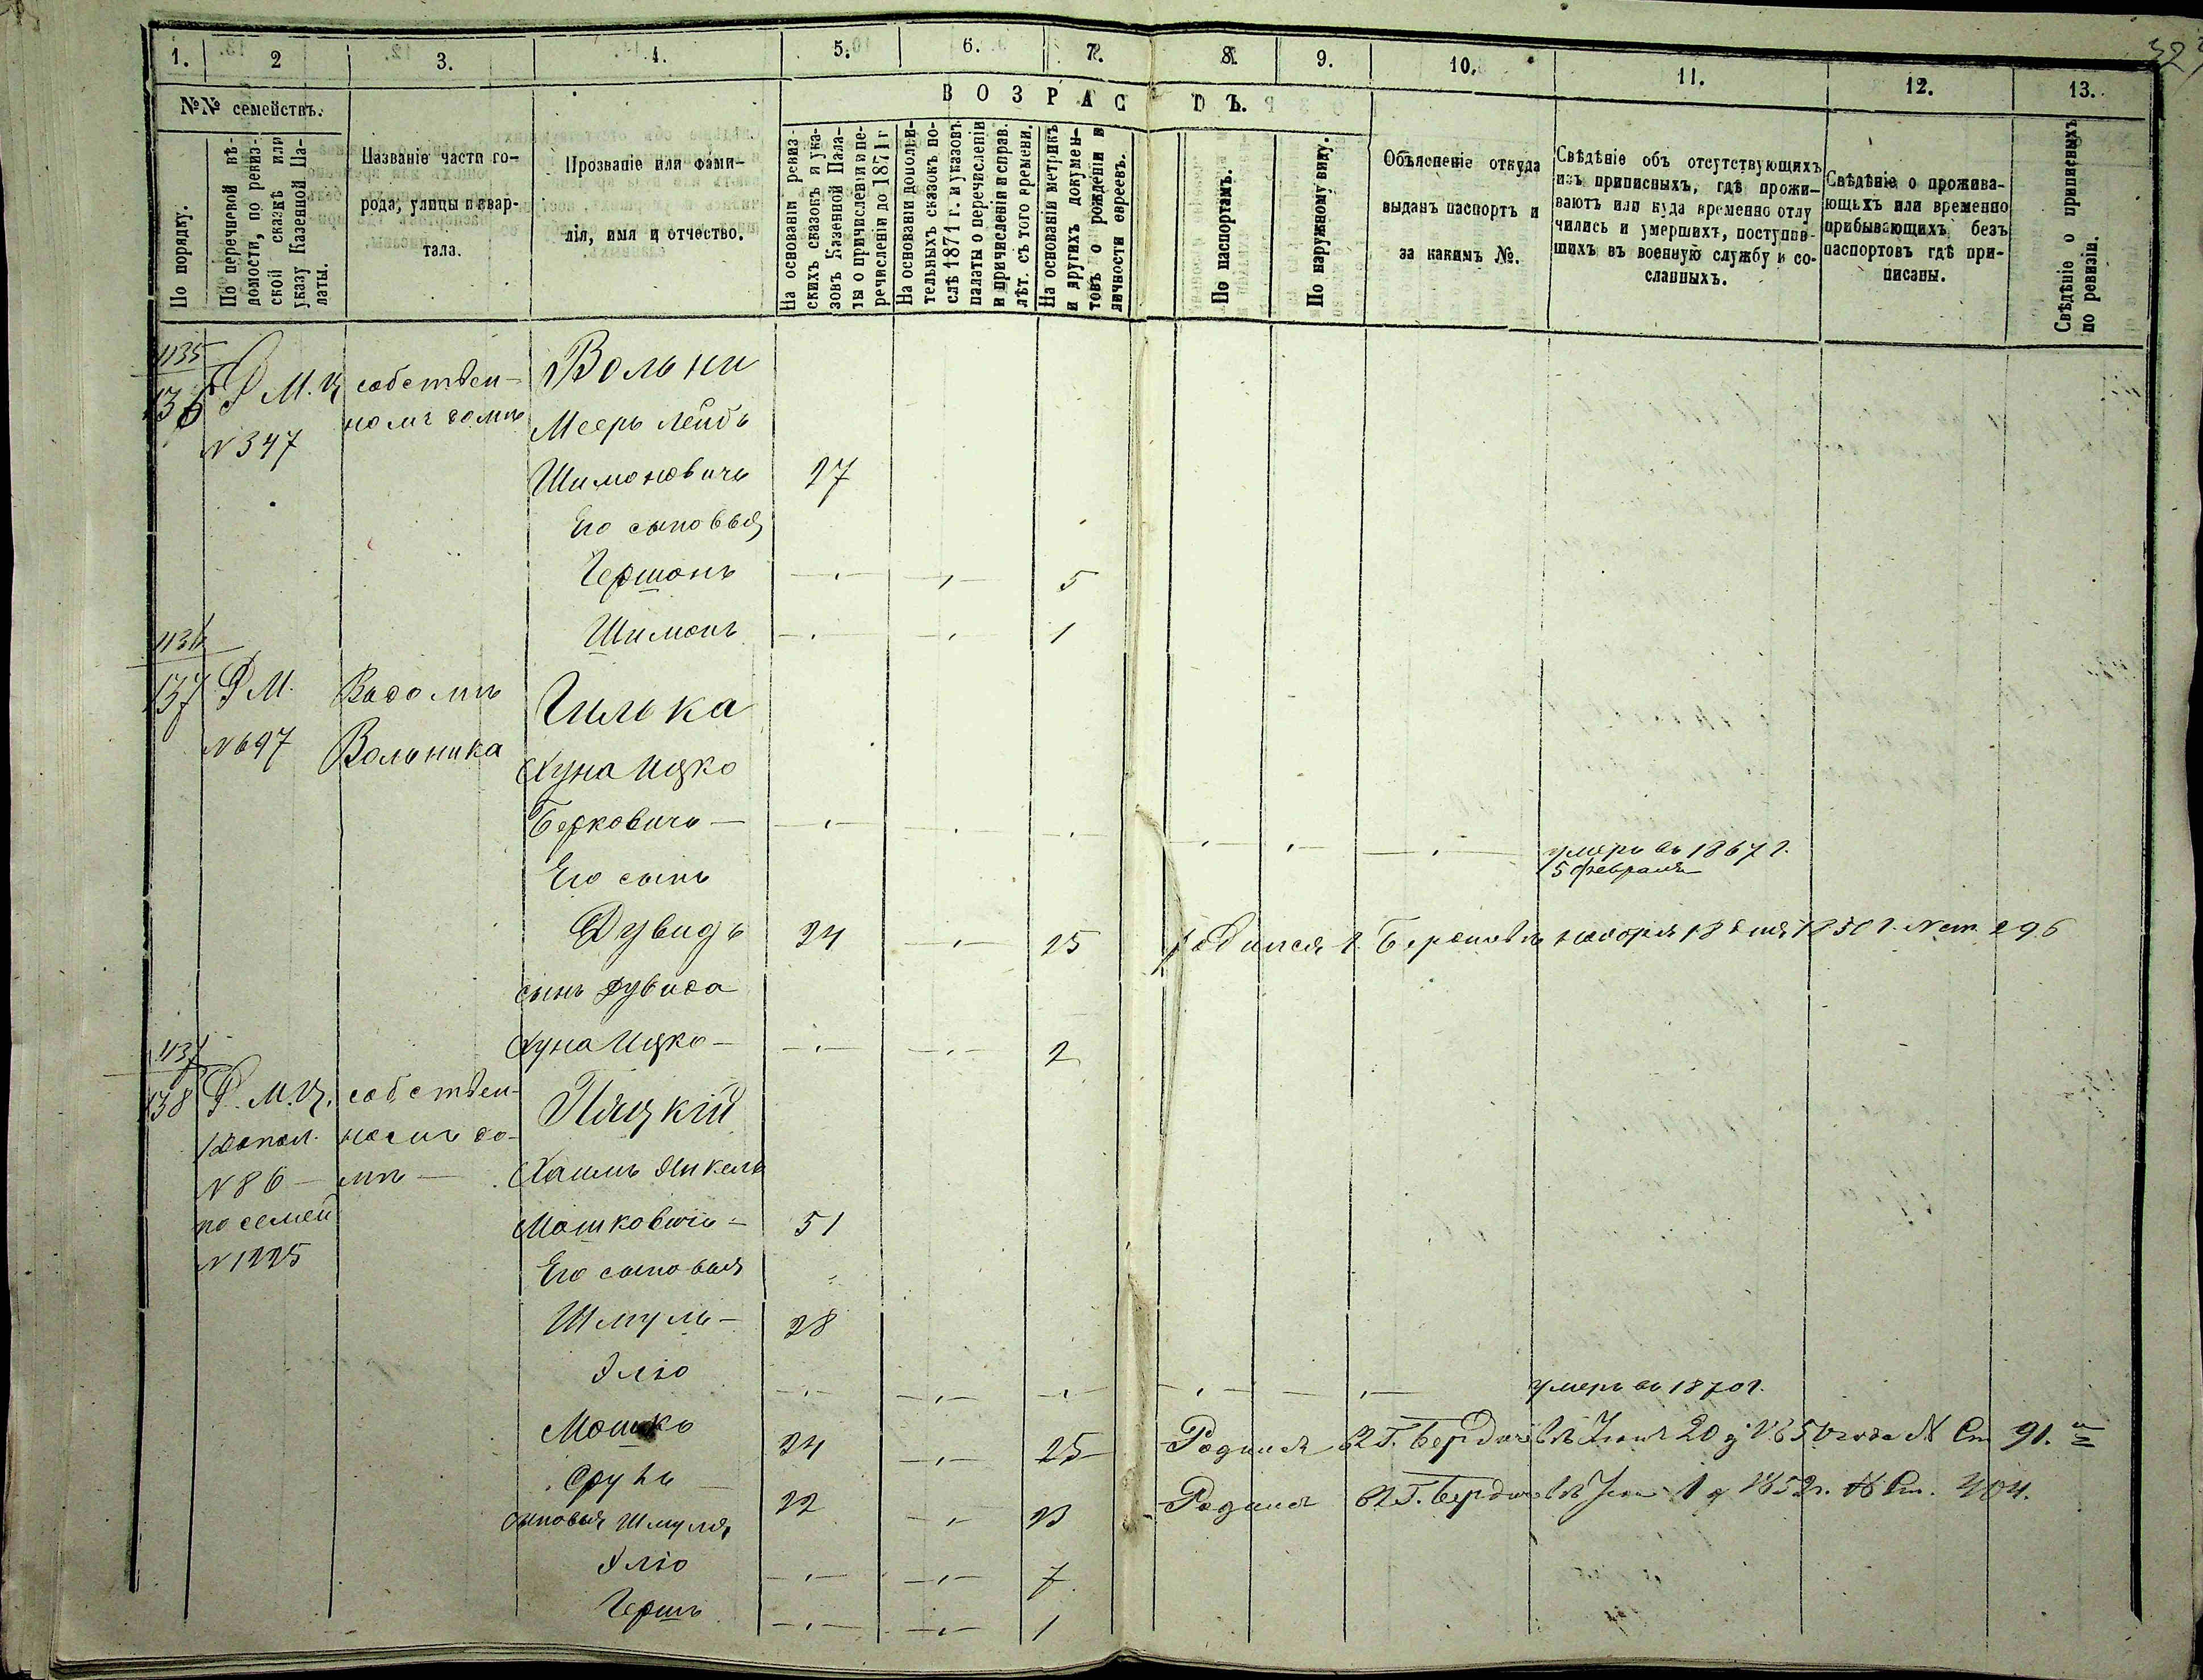 1. 2 3. 4. 5. 6. 7. 8. 9. 10. 11. 12. 13.
№№ семействъ.
По порядку.
По перечневой вѣ-
домости, по ревиз-
ской сказкѣ или
указу Казенной Па-
латы.
Названіе части го-
рода, улицы и квар-
тала.
Прозваніе или фами-
лія, имя и отчество.
ВОЗРАСТЪ.
На основаніи ревиз-
скихъ сказокъ и ука-
зовъ Казенной Пала-
ты о причисленіи и пе-
речисленіи до 1871 г
На основаніи дополни-
тельныхъ сказокъ по-
слѣ 1871 г. и указовъ
палаты о перечисленіи
и причисленіи и справ.
лѣт. съ того времени.
На основаніи метрикъ
и другихъ докумен-
товъ о рожденіи и
личности евреевъ.
По паспортамъ.
По наружному виду.
Объясненіе откуда
выданъ паспортъ и
за какимъ №.
Свѣдѣніе объ отсутствующихъ
изъ приписныхъ, гдѣ прожи-
ваютъ или куда временно отлу
чились и умершихъ, поступив-
шихъ въ военную службу и со-
сланныхъ.
Свѣдѣніе о прожива-
ющихъ или временно
прибывающихъ безъ
паспортовъ гдѣ при-
писаны.
Свѣдѣніе о приписныхъ
по ревизіи.
1135
136 Р М. Ц собствен- Вольни
N 347 номъ домѣ Мееръ Лейбъ
Шимоновичъ 27
Его сыновья
Гершонъ 5
Шимонъ 1
1136
137 Р М. Въ домѣ Гилька
N 697 Вольника Хуна Ицко
Берковичъ — умеръ въ 1867 г.
5 февраля
Его сынъ
Дувидъ 24 25 родился г. 18 1850 г. N ст. 296
сынъ Дувида
Хуна Ицко — 2
1137
138 Р. М. Ц. собствен-
1 допол. номъ до- Пляцкій
N 86 — мѣ — Хаимъ Янкель
по семей Мошковичъ — 51
N 1225 Его сыновья
Шмуль — 28
Элio умеръ въ 1870 г.
Мошко 24 25 Родился въ Г. Бердичевѣ 20 д. 1850 года N Ст 91.
Сруль 22 23 Родился въ Г. Бердичевѣ 1 д 1852 г. N Ст. 404.
сыновья Шмуля
Элio 7
Гершъ 1